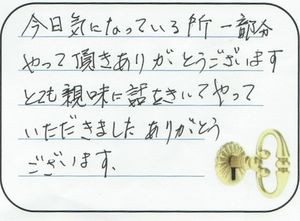 今日気になっている所一部分
やって頂きありがとうございます
とても親味に話をきいてやって
いただきました ありがとう
ございます、